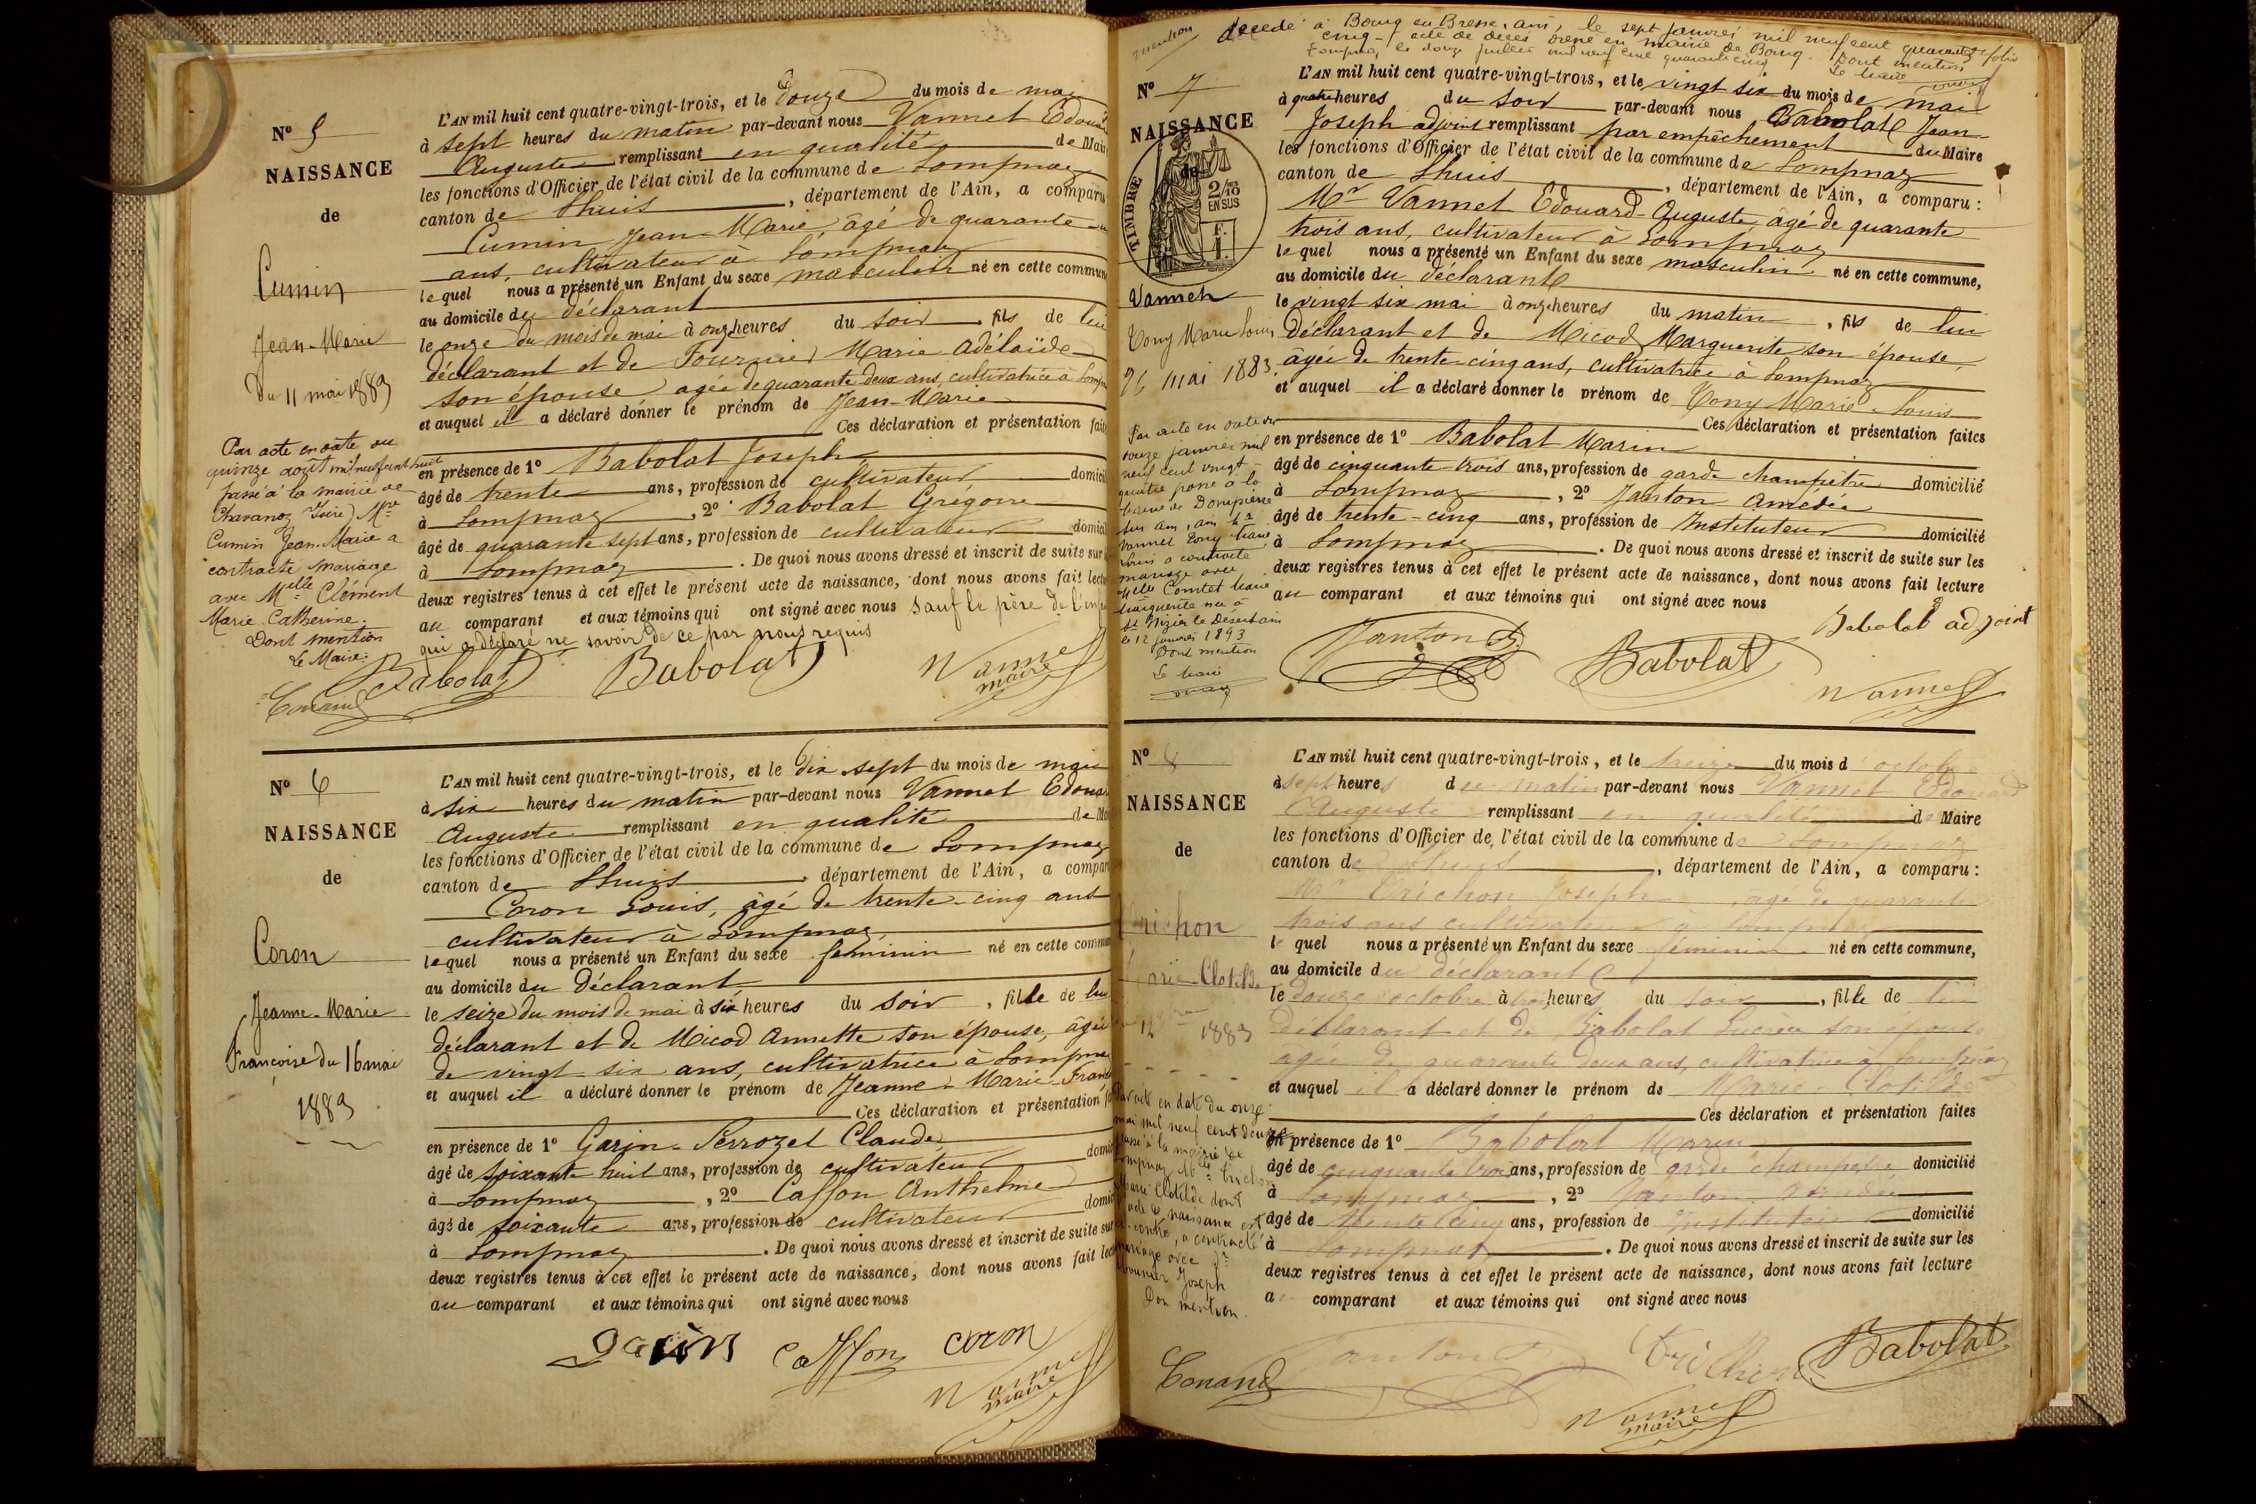 N° 5
NAISSANCE
de
Cumin
Jean-Marie
du 11 mai 1883
Par acte en date du
quinze août mil neuf cent huit
passé à la mairie de
Chavanoz (Isère) Mr
Cumin Jean-Marie a
contracté mariage
avec Melle Clément
Marie Catherine.
Dont mention
Le Maire:
L'AN mil huit cent quatre-vingt-trois, et le douze du mois de mai
à sept heures du matin par-devant nous Vannet Edouard
Auguste remplissant en qualité de Maire
les fonctions d'Officier de l'état civil de la commune de Lompnaz
canton de Lhuis, département de l'Ain, a comparu
Cumin Jean-Marie, âgé de quarante
ans, cultivateur à Lompnaz
lequel nous a présenté un Enfant du sexe masculin né en cette commune
au domicile du déclarant
le onze du mois de mai à onze heures du soir, fils de lui
déclarant et de Fournier Marie Adélaïde
son épouse agée de quarante deux ans, cultivatrice à Lompnaz
et auquel il a déclaré donner le prénom de Jean-Marie
Ces déclaration et présentation faites
en présence de 1° Babolat Joseph
âgé de trente ans, profession de cultivateur domicilié
à Lompnaz, 2° Babolat Grégoire
âgé de quarante sept ans, profession de cultivateur domicilié
à Lompnaz. De quoi nous avons dressé et inscrit de suite sur
deux registres tenus à cet effet le présent acte de naissance, dont nous avons fait lecture
au comparant et aux témoins qui ont signé avec nous sauf le père de l'enfant
qui a déclaré ne savoir de ce par nous requis
Babolat Babolat Vannet
maire
N° 6
NAISSANCE
de
Coron
Jeanne-Marie
Françoise du 16 mai
1883
L'AN mil huit cent quatre-vingt-trois, et le dix sept du mois de mai
à six heures du matin par-devant nous Vannet Edouard
Auguste remplissant en qualité de Maire
les fonctions d'Officier de l'état civil de la commune de Lompnaz
canton de Lhuis, département de l'Ain, a comparu
Coron Louis, âgé de trente-cinq ans
cultivateur à Lompnaz
lequel nous a présenté un Enfant du sexe féminin né en cette commune
au domicile du déclarant
le seize du mois de mai à six heures du soir, fille de lui
déclarant et de Micod Annette son épouse, âgée
de vingt six ans, cultivatrice à Lompnaz
et auquel il a déclaré donner le prénom de Jeanne-Marie-Françoise
Ces déclaration et présentation faites
en présence de 1° Garin-Perrozet Claude
âgé de soixante huit ans, profession de cultivateur domicilié
à Lompnaz, 2° Caffon Anthelme
âgé de soixante ans, profession de cultivateur domicilié
à Lompnaz. De quoi nous avons dressé et inscrit de suite sur
deux registres tenus à cet effet le présent acte de naissance, dont nous avons fait lecture
au comparant et aux témoins qui ont signé avec nous
Garin Caffon Coron
Vannet
maire
mention décédé à Bourg en Bresse, Ain, le sept janvier mil neuf cent quarante
cinq - acte de décès dressé en mairie de Bourg. Dont mention
Lompnaz, le douze juillet mil neuf cent quarante cinq
Le maire
N° 7
NAISSANCE
de
TIMBRE
2/10
EN SUS
F.
1.
Vannet
Tony Marie Louis
26 mai 1883.
Par acte en date du
douze janvier mil
neuf cent vingt-
quatre passé à la
mairie de Dompierre
sur Ain, Ain, Mr
Vannet Tony Marie
Louis a contracté
mariage avec
Melle Comtet Marie
Marguerite née à
St Nizier le Désert Ain
le 12 janvier 1893
Dont mention
Le maire
L'AN mil huit cent quatre-vingt-trois, et le vingt six du mois de mai
à quatre heures du soir par-devant nous Babolat Jean
Joseph adjoint remplissant par empêchement du Maire
les fonctions d'Officier de l'état civil de la commune de Lompnaz
canton de Lhuis, département de l'Ain, a comparu:
Mr Vannet Edouard-Auguste âgé de quarante
trois ans, cultivateur à Lompnaz
lequel nous a présenté un Enfant du sexe masculin né en cette commune,
au domicile du déclarant
le vingt six mai à onze heures du matin, fils de lui
déclarant et de Micod Marguerite son épouse,
âgée de trente cinq ans, cultivatrice à Lompnaz
et auquel il a déclaré donner le prénom de Tony Marie Louis
Ces déclaration et présentation faites
en présence de 1° Babolat Marin
âgé de cinquante trois ans, profession de garde champêtre domicilié
à Lompnaz, 2° Janton Amédée
âgé de trente-cinq ans, profession de Instituteur domicilié
à Lompnaz. De quoi nous avons dressé et inscrit de suite sur les
deux registres tenus à cet effet le présent acte de naissance, dont nous avons fait lecture
au comparant et aux témoins qui ont signé avec nous
Babolat adjoint
Janton Babolat
Vannet
N° 8
NAISSANCE
de
Trichon
Marie-Clotilde
12 1883
Par acte en date du onze
mai mil neuf cent douze
passé à la mairie de
Lompnaz Melle Trichon
Marie Clotilde dont
l'acte de naissance est
ci-contre, a contracté
mariage avec Mr
Mounier Joseph
Dont mention.
Conand
L'AN mil huit cent quatre-vingt-trois, et le treize du mois d'octobre
à sept heures du matin par-devant nous Vannet Edouard
Auguste remplissant en qualité de Maire
les fonctions d'Officier de l'état civil de la commune de Lompnaz
canton de Lhuis, département de l'Ain, a comparu:
Mr Trichon Joseph, âgé de quarante
trois ans cultivateur à Lompnaz
lequel nous a présenté un Enfant du sexe féminin né en cette commune,
au domicile du déclarant
le douze octobre à trois heures du soir, fille de lui
déclarant et de Babolat Lucrèce son épouse
agée de quarante deux ans, cultivatrice à Lompnaz
et auquel il a déclaré donner le prénom de Marie-Clotilde
Ces déclaration et présentation faites
en présence de 1° Babolat Marin
âgé de cinquante trois ans, profession de garde champêtre domicilié
à Lompnaz, 2° Janton Amédée
âgé de trente cinq ans, profession de Instituteur domicilié
à Lompnaz. De quoi nous avons dressé et inscrit de suite sur les
deux registres tenus à cet effet le présent acte de naissance, dont nous avons fait lecture
a comparant et aux témoins qui ont signé avec nous
Janton Trichon Babolat
Vannet
maire